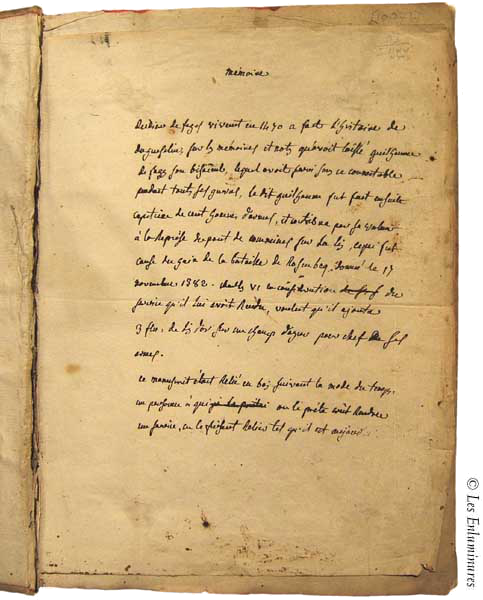 mémoire
de fages vivent en 1470 a faite l'histoire de
duguesclin, sur les mémoires et nots qu'avoit laissé guilhaume
de fages son bisaieul, lequel avoit servi sous ce connoitable
pendent touts ses guères, le dit guilhaume fut fait ensuite
capitaine de cent homes d'armes, et contribua par sa valeur
à la reprise du pont de commines sur la lis, ce qui fut
cause du gain de la bataille de Rosenbeq, donné le 17
novembre 1382. charles VI en considération du
service qu'il lui avoit Rendu, voulut qu'il ajouta
3 fleurs de lis d'or sur un champ d'azur pour chef de ses
armes.
ce manuscrit étant Relié en bois suivant la mode du temps,
un persone à qui on le prêta crût Rendre
un service, en le faisant Relier tel qu'il est aujourd.
© Les Enluminures